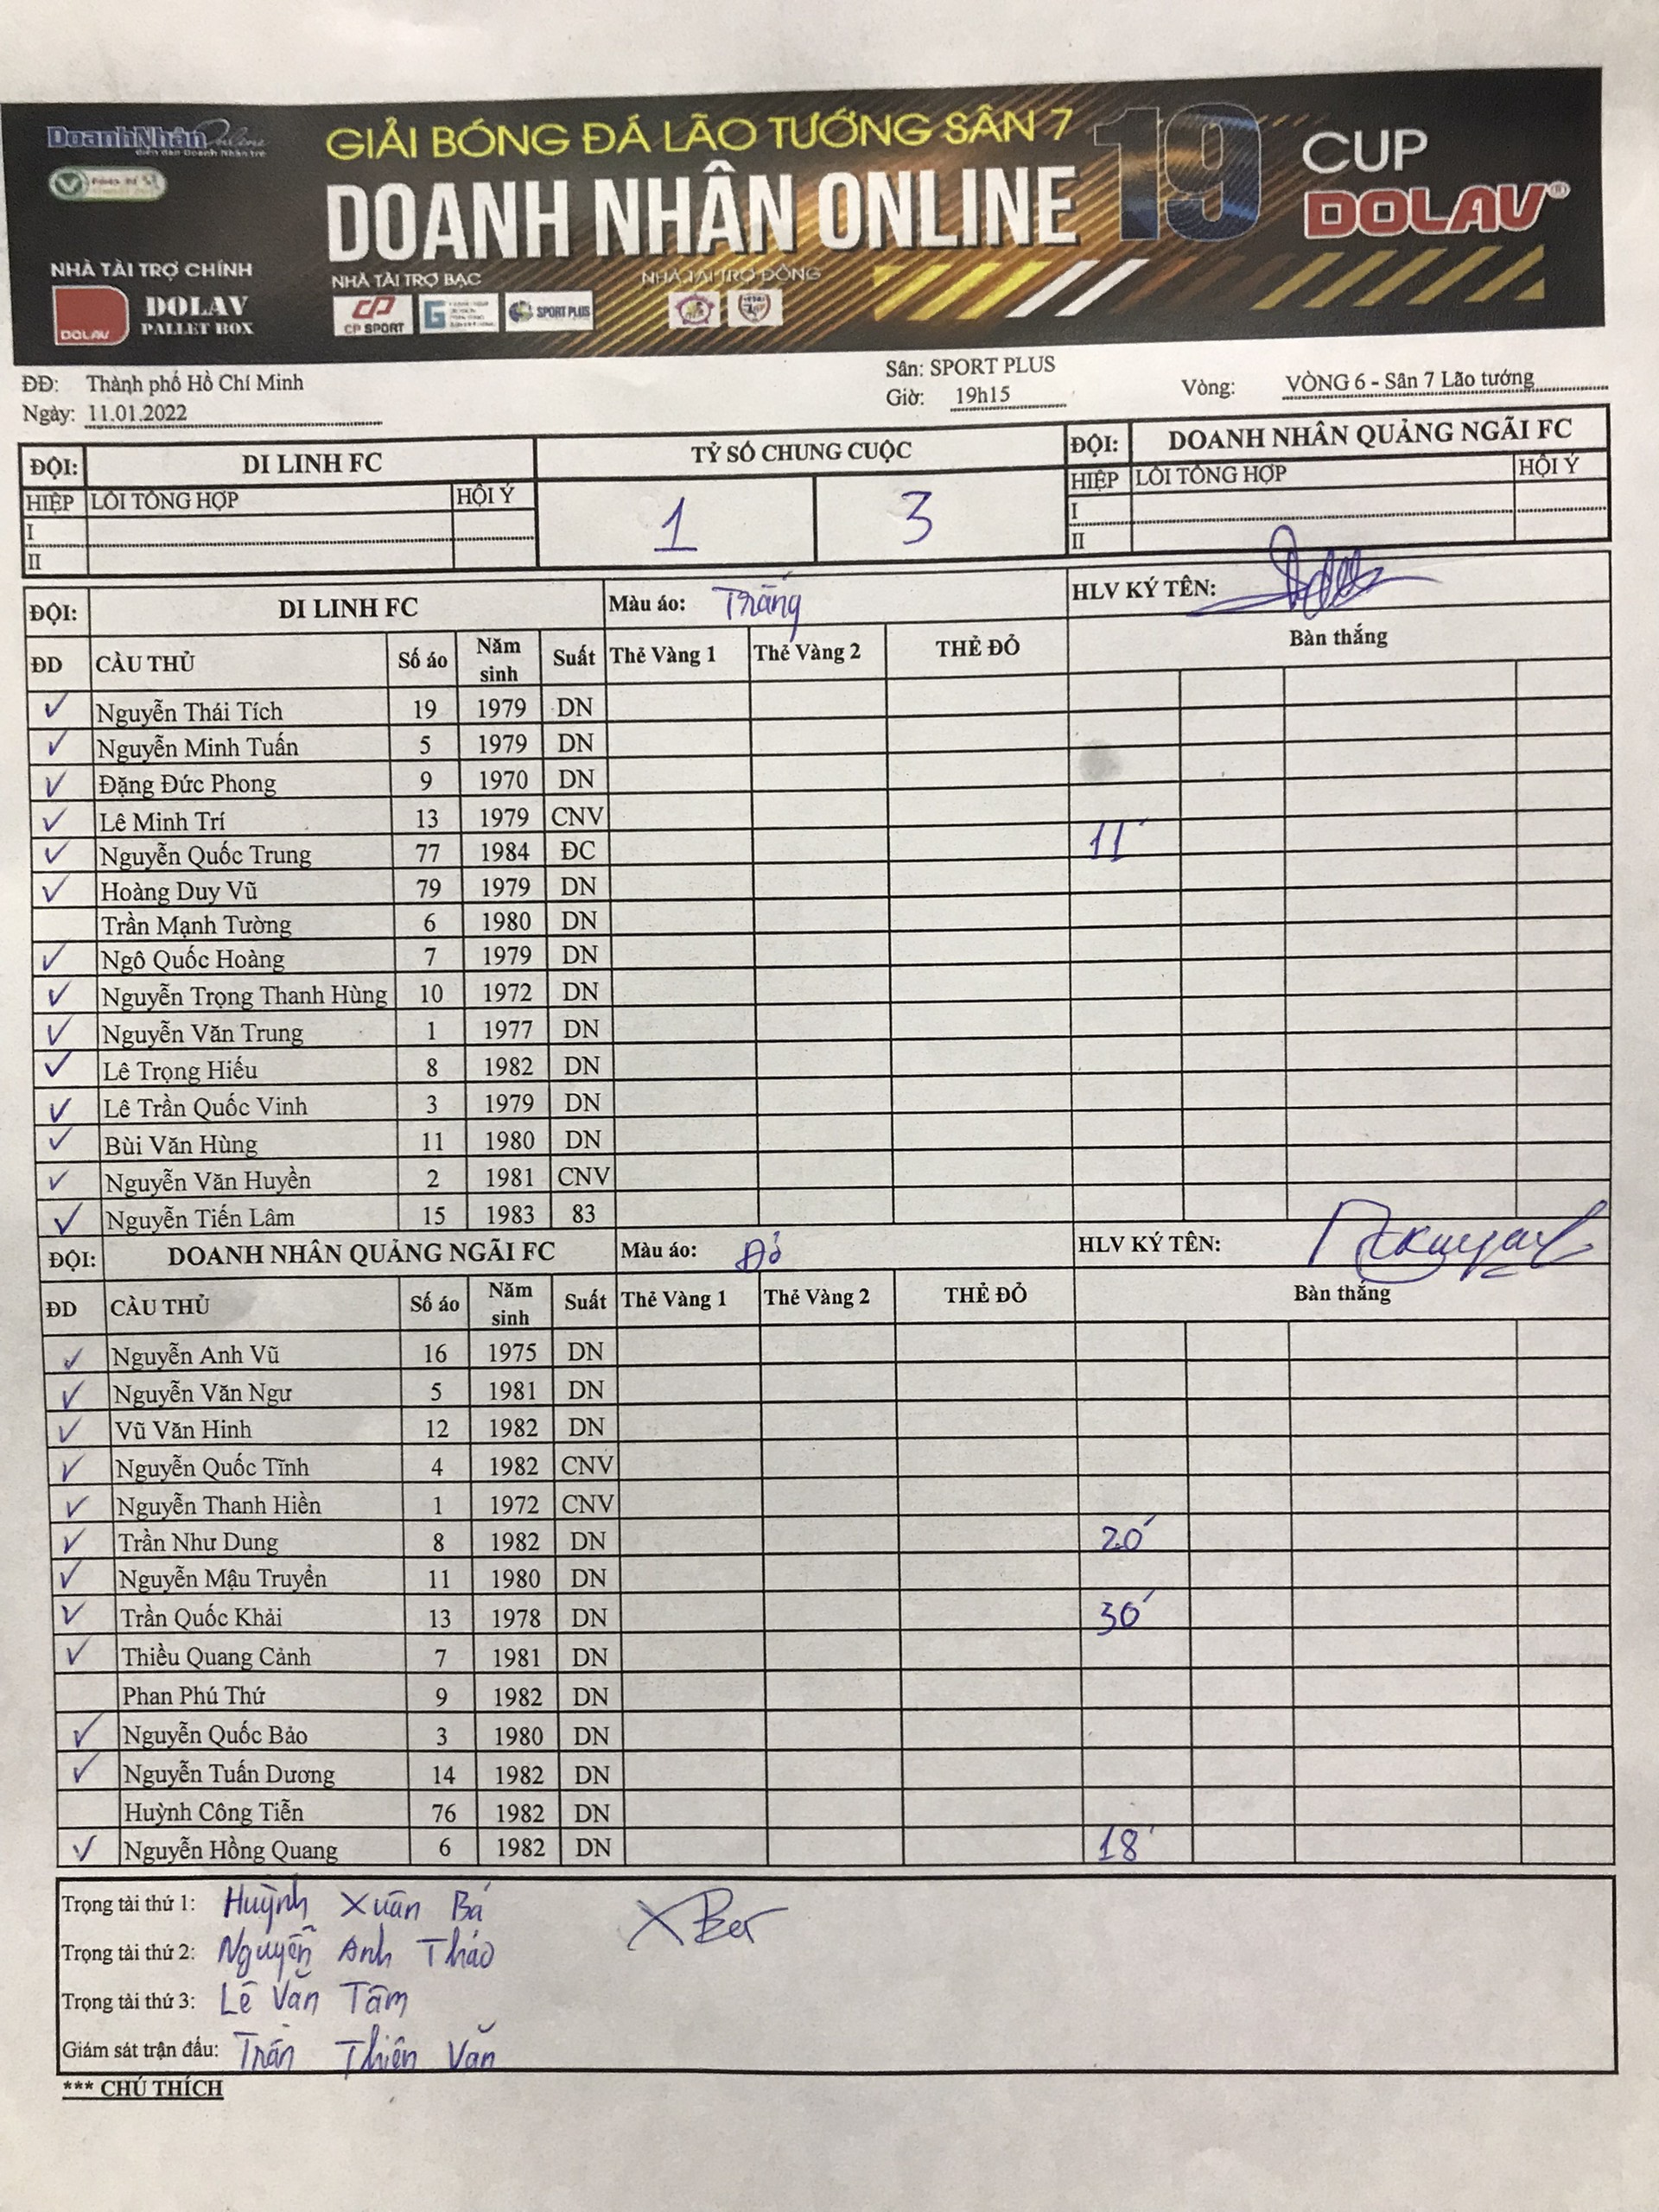 DoanhNhân Online
diễn đàn Doanh Nhân trẻ
GIẢI BÓNG ĐÁ LÃO TƯỚNG SÂN 7
DOANH NHÂN ONLINE 19
CUP
DOLAV®
NHÀ TÀI TRỢ CHÍNH
DOLAV
DOLAV
PALLET BOX
NHÀ TÀI TRỢ BẠC
CP SPORT
SPORT PLUS
NHÀ TÀI TRỢ ĐỒNG
ĐĐ: Thành phố Hồ Chí Minh
Sân: SPORT PLUS
Ngày: 11.01.2022
Giờ: 19h15
Vòng: VÒNG 6 - Sân 7 Lão tướng
ĐỘI: DI LINH FC TỶ SỐ CHUNG CUỘC ĐỘI: DOANH NHÂN QUẢNG NGÃI FC
HIỆP LỖI TỔNG HỢP HỘI Ý 1 3 HIỆP LỖI TỔNG HỢP HỘI Ý
I I
II II
ĐỘI: DI LINH FC Màu áo: Trắng HLV KÝ TÊN:
ĐD CẦU THỦ Số áo Năm sinh Suất Thẻ Vàng 1 Thẻ Vàng 2 THẺ ĐỎ Bàn thắng
✓ Nguyễn Thái Tích 19 1979 DN
✓ Nguyễn Minh Tuấn 5 1979 DN
✓ Đặng Đức Phong 9 1970 DN
✓ Lê Minh Trí 13 1979 CNV
✓ Nguyễn Quốc Trung 77 1984 ĐC 11'
✓ Hoàng Duy Vũ 79 1979 DN
Trần Mạnh Tường 6 1980 DN
✓ Ngô Quốc Hoàng 7 1979 DN
✓ Nguyễn Trọng Thanh Hùng 10 1972 DN
✓ Nguyễn Văn Trung 1 1977 DN
✓ Lê Trọng Hiếu 8 1982 DN
✓ Lê Trần Quốc Vinh 3 1979 DN
✓ Bùi Văn Hùng 11 1980 DN
✓ Nguyễn Văn Huyền 2 1981 CNV
✓ Nguyễn Tiến Lâm 15 1983 83
ĐỘI: DOANH NHÂN QUẢNG NGÃI FC Màu áo: Đỏ HLV KÝ TÊN:
ĐD CẦU THỦ Số áo Năm sinh Suất Thẻ Vàng 1 Thẻ Vàng 2 THẺ ĐỎ Bàn thắng
✓ Nguyễn Anh Vũ 16 1975 DN
✓ Nguyễn Văn Ngư 5 1981 DN
✓ Vũ Văn Hinh 12 1982 DN
✓ Nguyễn Quốc Tĩnh 4 1982 CNV
✓ Nguyễn Thanh Hiền 1 1972 CNV
✓ Trần Như Dung 8 1982 DN 20'
✓ Nguyễn Mậu Truyền 11 1980 DN
✓ Trần Quốc Khải 13 1978 DN 30'
✓ Thiều Quang Cảnh 7 1981 DN
Phan Phú Thứ 9 1982 DN
✓ Nguyễn Quốc Bảo 3 1980 DN
✓ Nguyễn Tuấn Dương 14 1982 DN
Huỳnh Công Tiễn 76 1982 DN
✓ Nguyễn Hồng Quang 6 1982 DN 18'
Trọng tài thứ 1: Huỳnh Xuân Bá
Trọng tài thứ 2: Nguyễn Anh Thảo
Trọng tài thứ 3: Lê Văn Tâm
Giám sát trận đấu: Trần Thiên Văn
*** CHÚ THÍCH